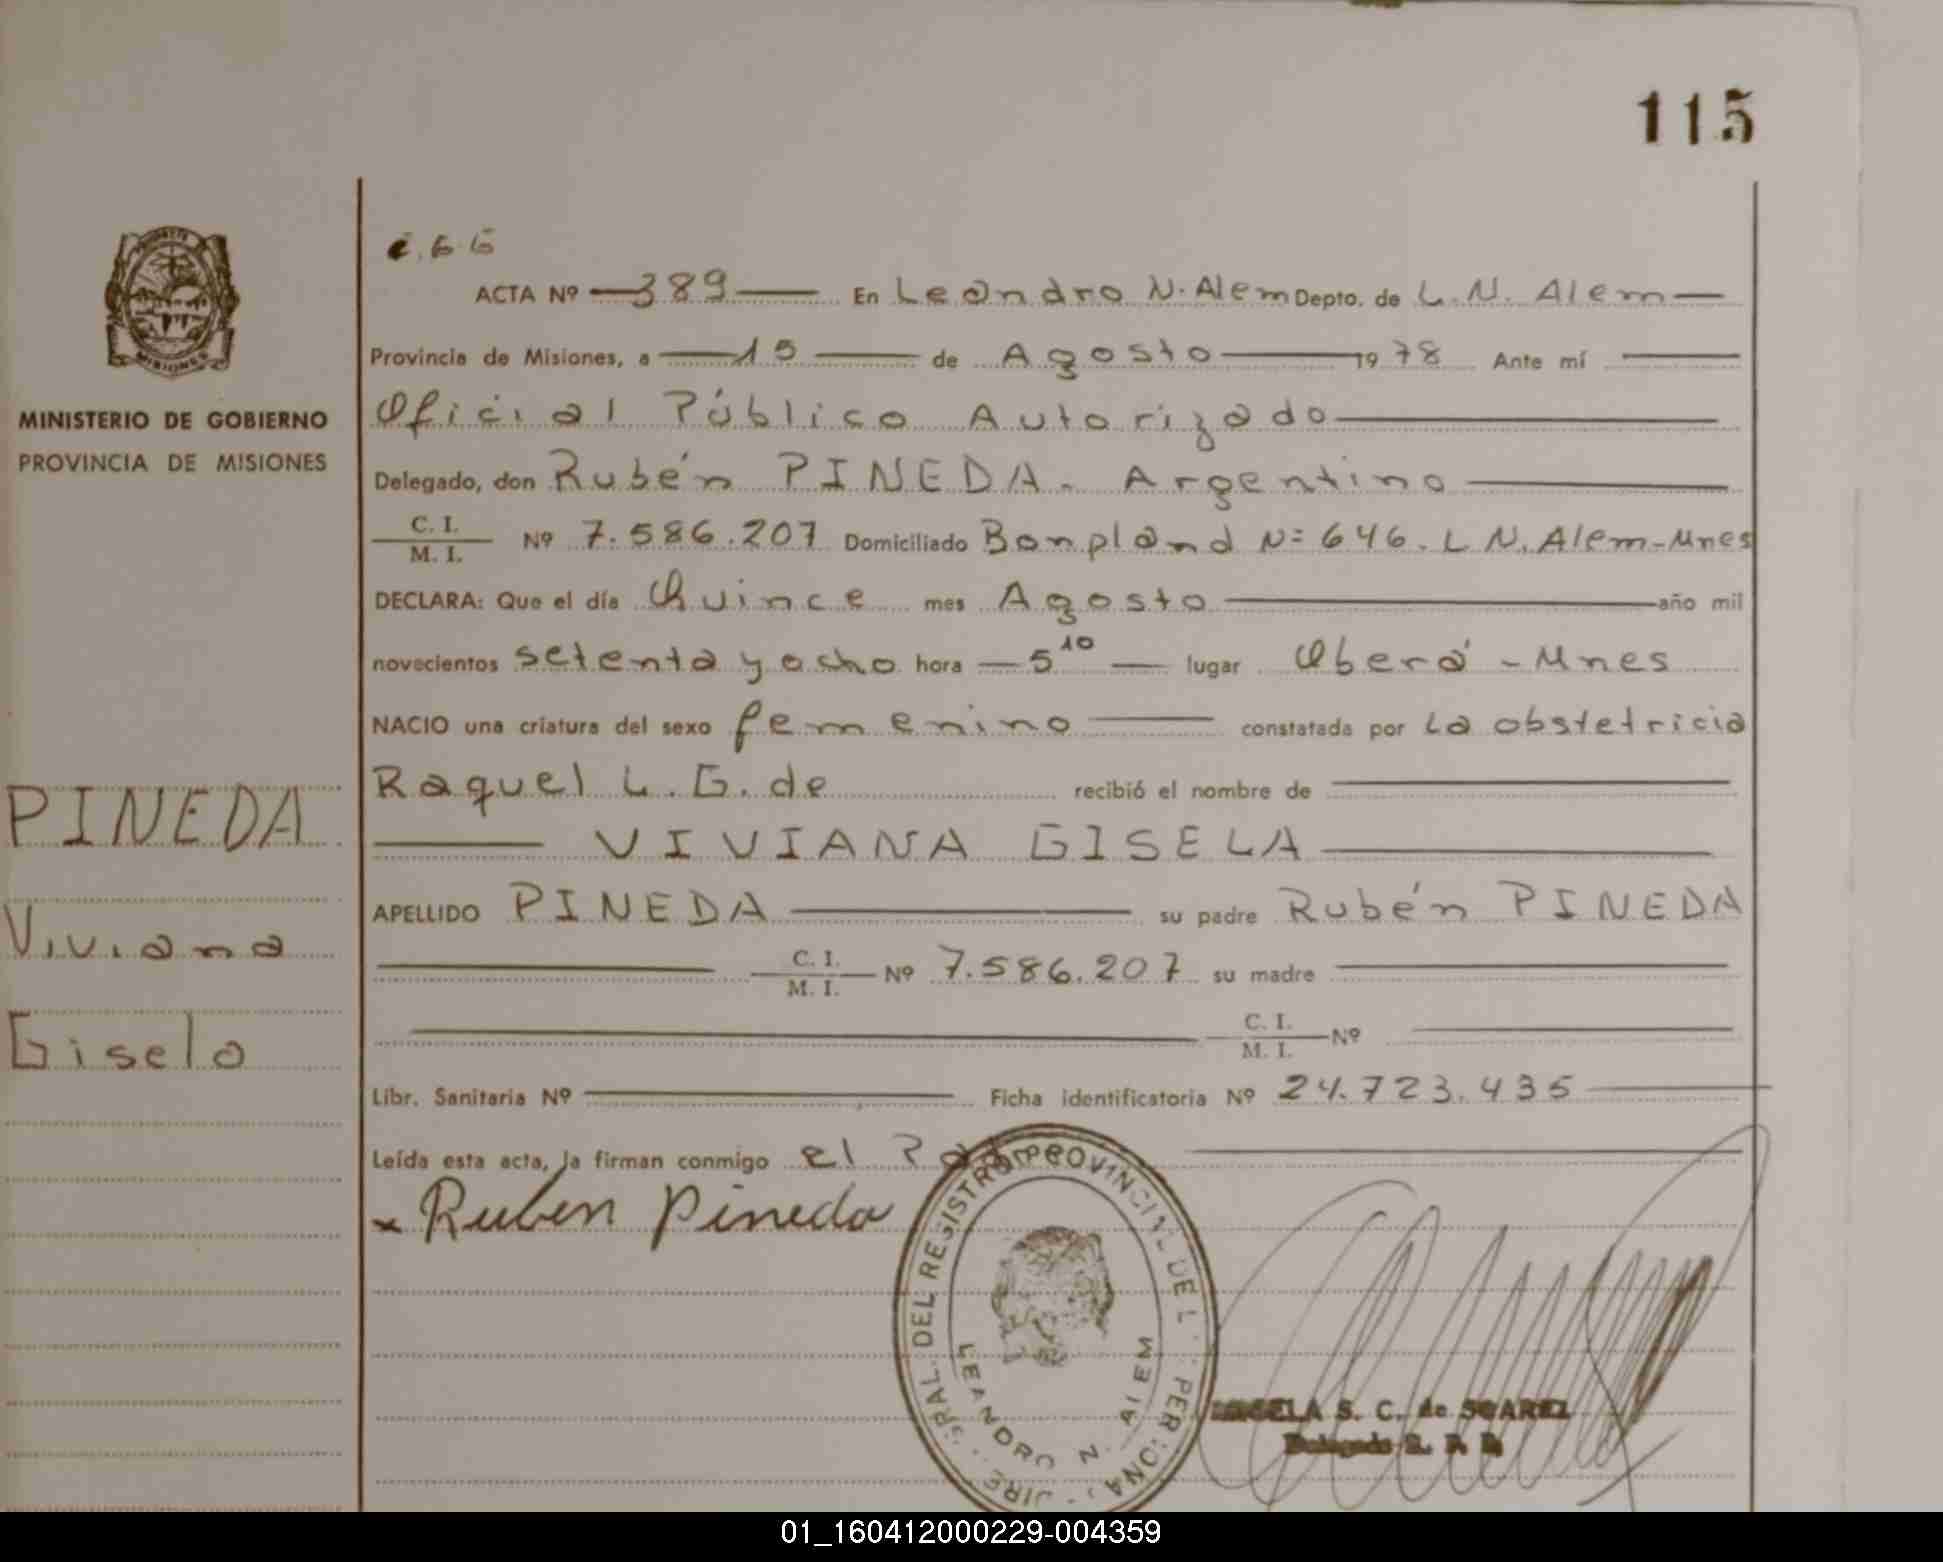 115
MINISTERIO DE GOBIERNO
PROVINCIA DE MISIONES
PINEDA
Viviana
Gisela
ACTA Nº 389 En Leandro N. Alem Depto. de L. N. Alem
Provincia de Misiones, a 15 de Agosto 1978 Ante mí
Oficial Público Autorizado
Delegado, don Rubén PINEDA. Argentino
C. I.
M. I. Nº 7.586.207 Domiciliado Bonpland Nº 646. L N. Alem-Mnes
DECLARA: Que el día Quince mes Agosto año mil
novecientos setenta y ocho hora 5 10 lugar Oberá - Mnes
NACIO una criatura del sexo femenino constatada por La obstetricia
Raquel L. G. de recibió el nombre de
VIVIANA GISELA
APELLIDO PINEDA su padre Rubén PINEDA
C. I.
M. I. Nº 7.586.207 su madre
C. I.
M. I. Nº
Libr. Sanitaria Nº Ficha identificatoria Nº 24.723.435
Leída esta acta, la firman conmigo el Padre
x Ruben Pineda
DEL REGISTRO PROVINCIAL DE L
LEANDRO N. ALEM
S. C. de SUAREZ
01_160412000229-004359